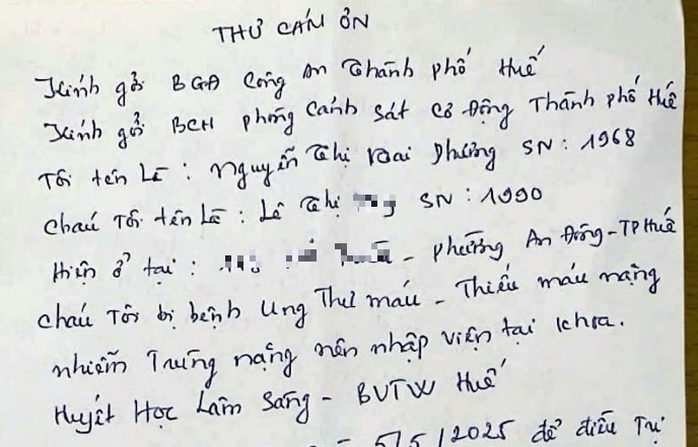 THƯ CẢM ƠN
Kính gởi BGĐ Công An Thành phố Huế
Kính gởi BCH phòng Cảnh Sát Cơ Động Thành phố Huế
Tôi tên Là : Nguyễn Thị Phương SN : 1968
Cháu Tôi tên Là : Lê Thị SN : 1990
Hiện ở tại : - phường An Đông - TP Huế
Cháu Tôi bị bệnh Ung Thư máu - Thiếu máu nặng
nhiễm Trùng nặng nên nhập viện tại khoa.
Huyết Học Lâm Sàng - BVTW Huế
5/5/2025 để điều Trị